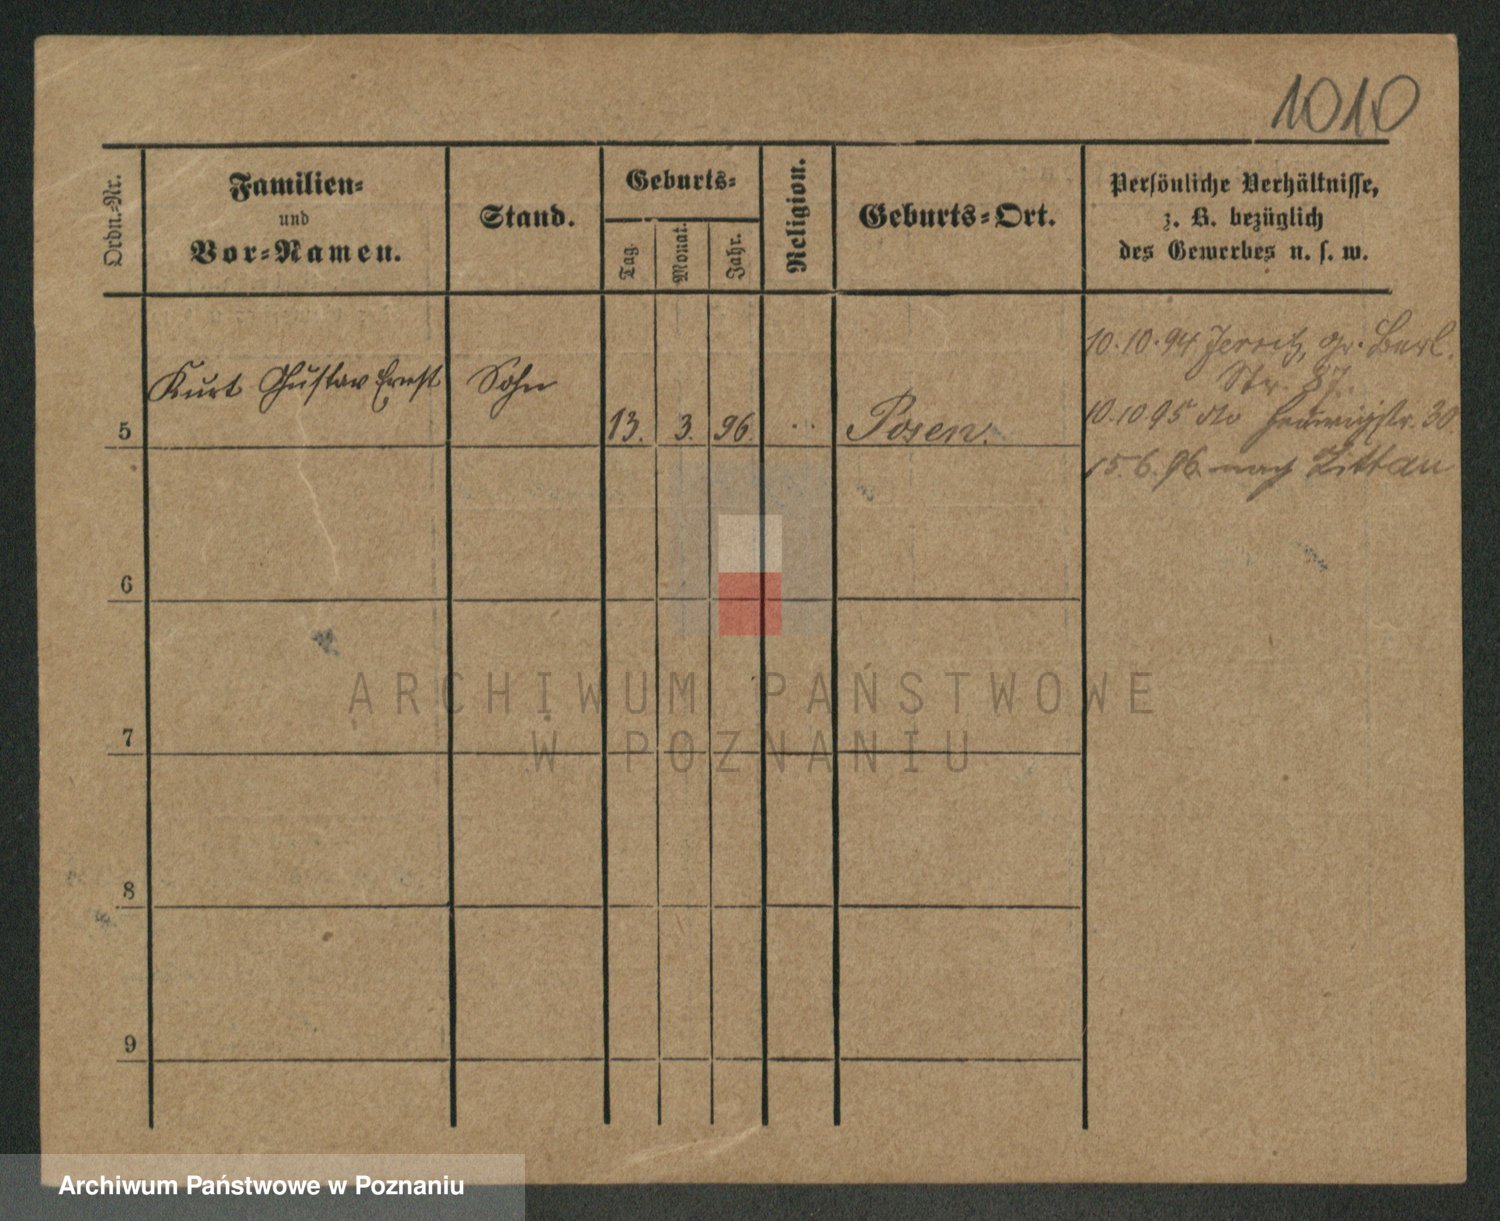 1010
Ordn.-Nr.
Familien-
und
Vor-Namen.
Stand.
Geburts-
Tag.
Monat.
Jahr.
Religion.
Geburts-Ort.
Persönliche Verhältnisse,
z. B. bezüglich
des Gewerbes u. s. w.
10.10.94 Jersitz, gr. Berl.
Str. 87.
5 Kurt Gustav Ernst Sohn 13. 3. 96. Posen.
10.10.95 dto Hedwigstr. 30.
15.6.96. nach Zittau
6
ARCHIWUM PAŃSTWOWE
W POZNANIU
7
8
9
Archiwum Państwowe w Poznaniu